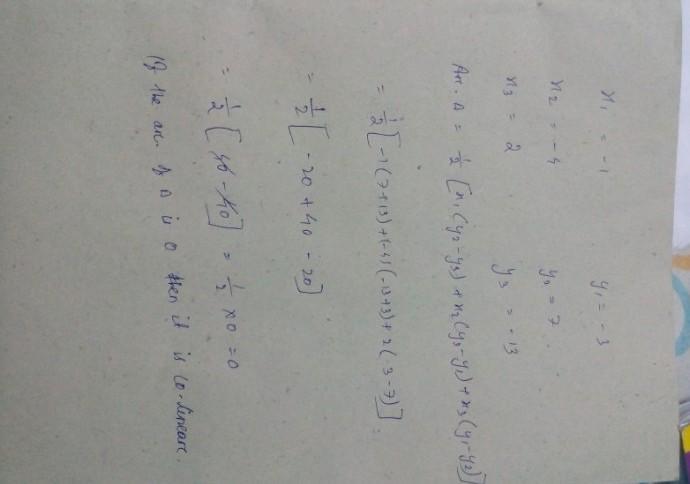 x₁ = -1 y₁ = -3
x₂ = -4 y₂ = 7
x₃ = 2 y₃ = -13
Ar. Δ = 1/2 [x₁(y₂-y₃) + x₂(y₃-y₁) + x₃(y₁-y₂)]
= 1/2 [-1(7+13) + (-4)(-13+3) + 2(-3-7)]
= 1/2 [-20 + 40 - 20]
= 1/2 [40 - 40] = 1/2 × 0 = 0
If the are. of Δ is 0 then it is Co-lineare.